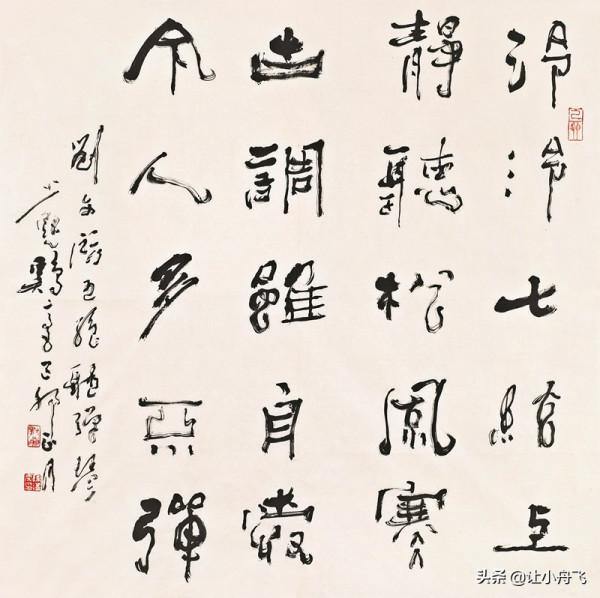 泠泠七絃上
靜聽松風寒
古調雖自愛
今人多不彈
劉五絕聽彈琴
己卯正月
头条 @让小舟飞